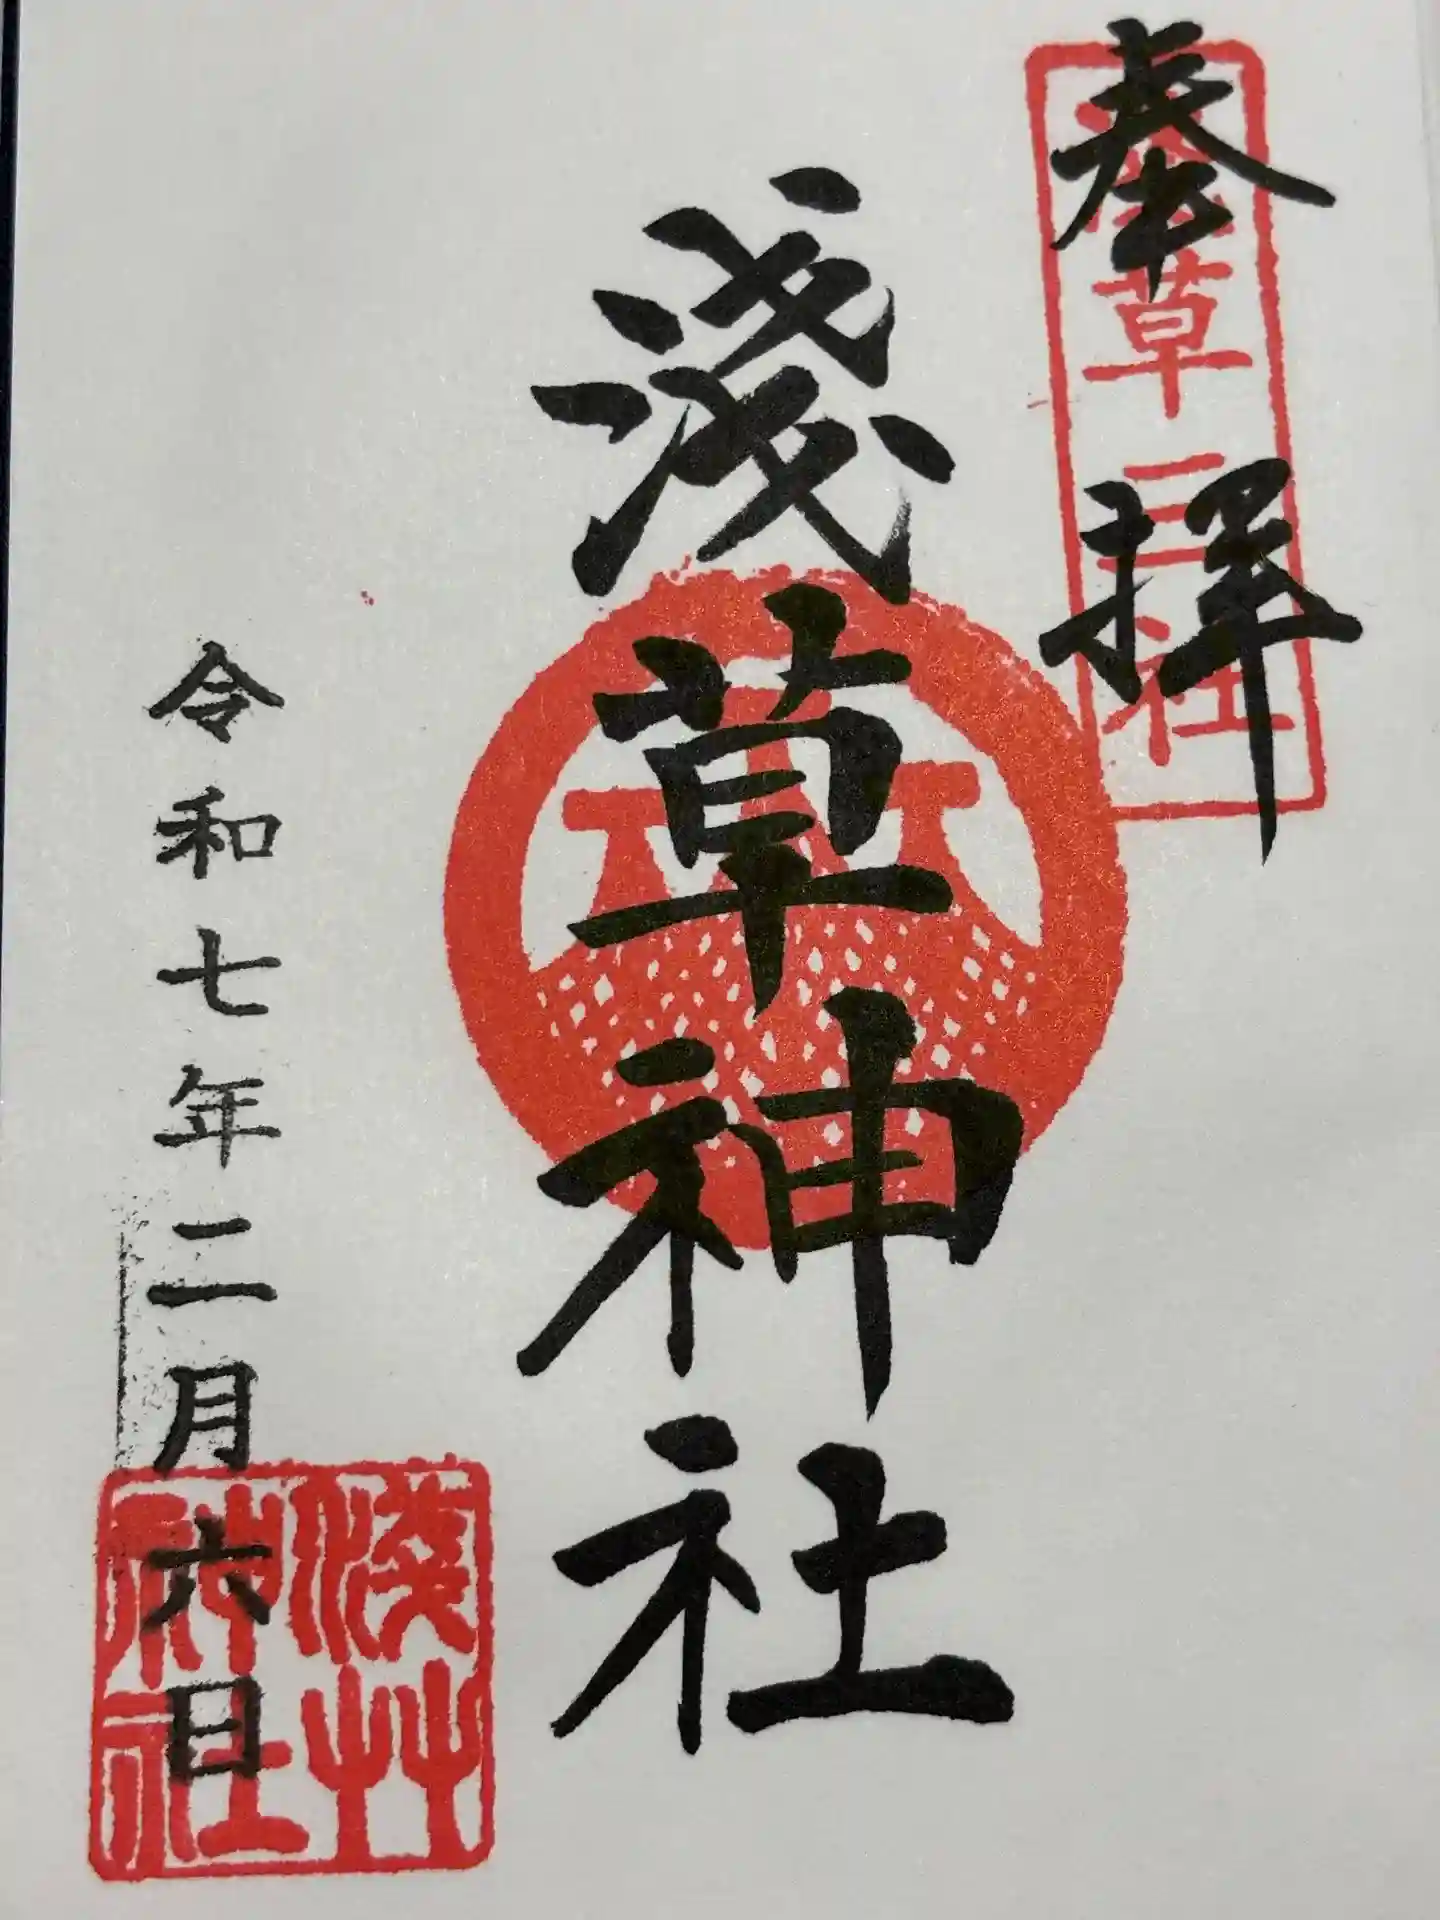 奉拝
浅草三社
淺草神社
令和七年二月六日
淺草神社